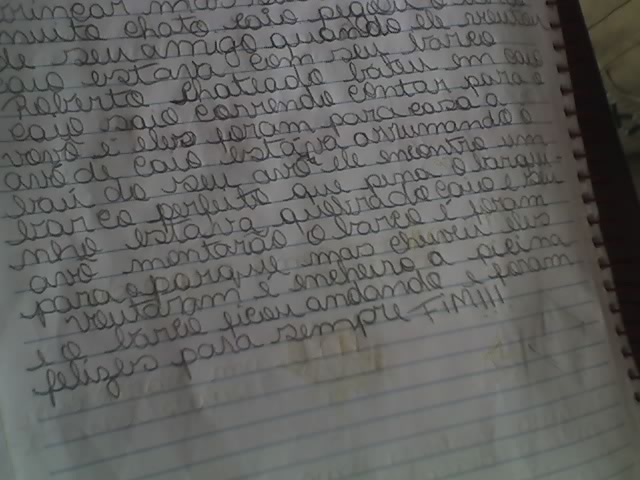 brincar mas
muito chato caio pegou o barco
de seu amigo quando ele voutou
caio estava com seu barco
Roberto chateado bateu em caio
caio saio correndo contar para o
vovô e eles foram para casa a
avó de caio estava arrumando o
baú do seu avô ele encontro um
barco perfeito que pena o barqui-
nho estava quebrado caio e seu
avô montarão o barco e foram
para o parque mas choveu eles
voutaram e encheiro a picina
e o barco ficou andando e foram
felizes para sempre FIM!!!